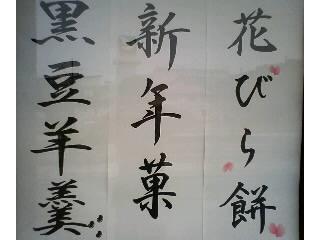 花びら餅
新年菓
黒豆羊羹